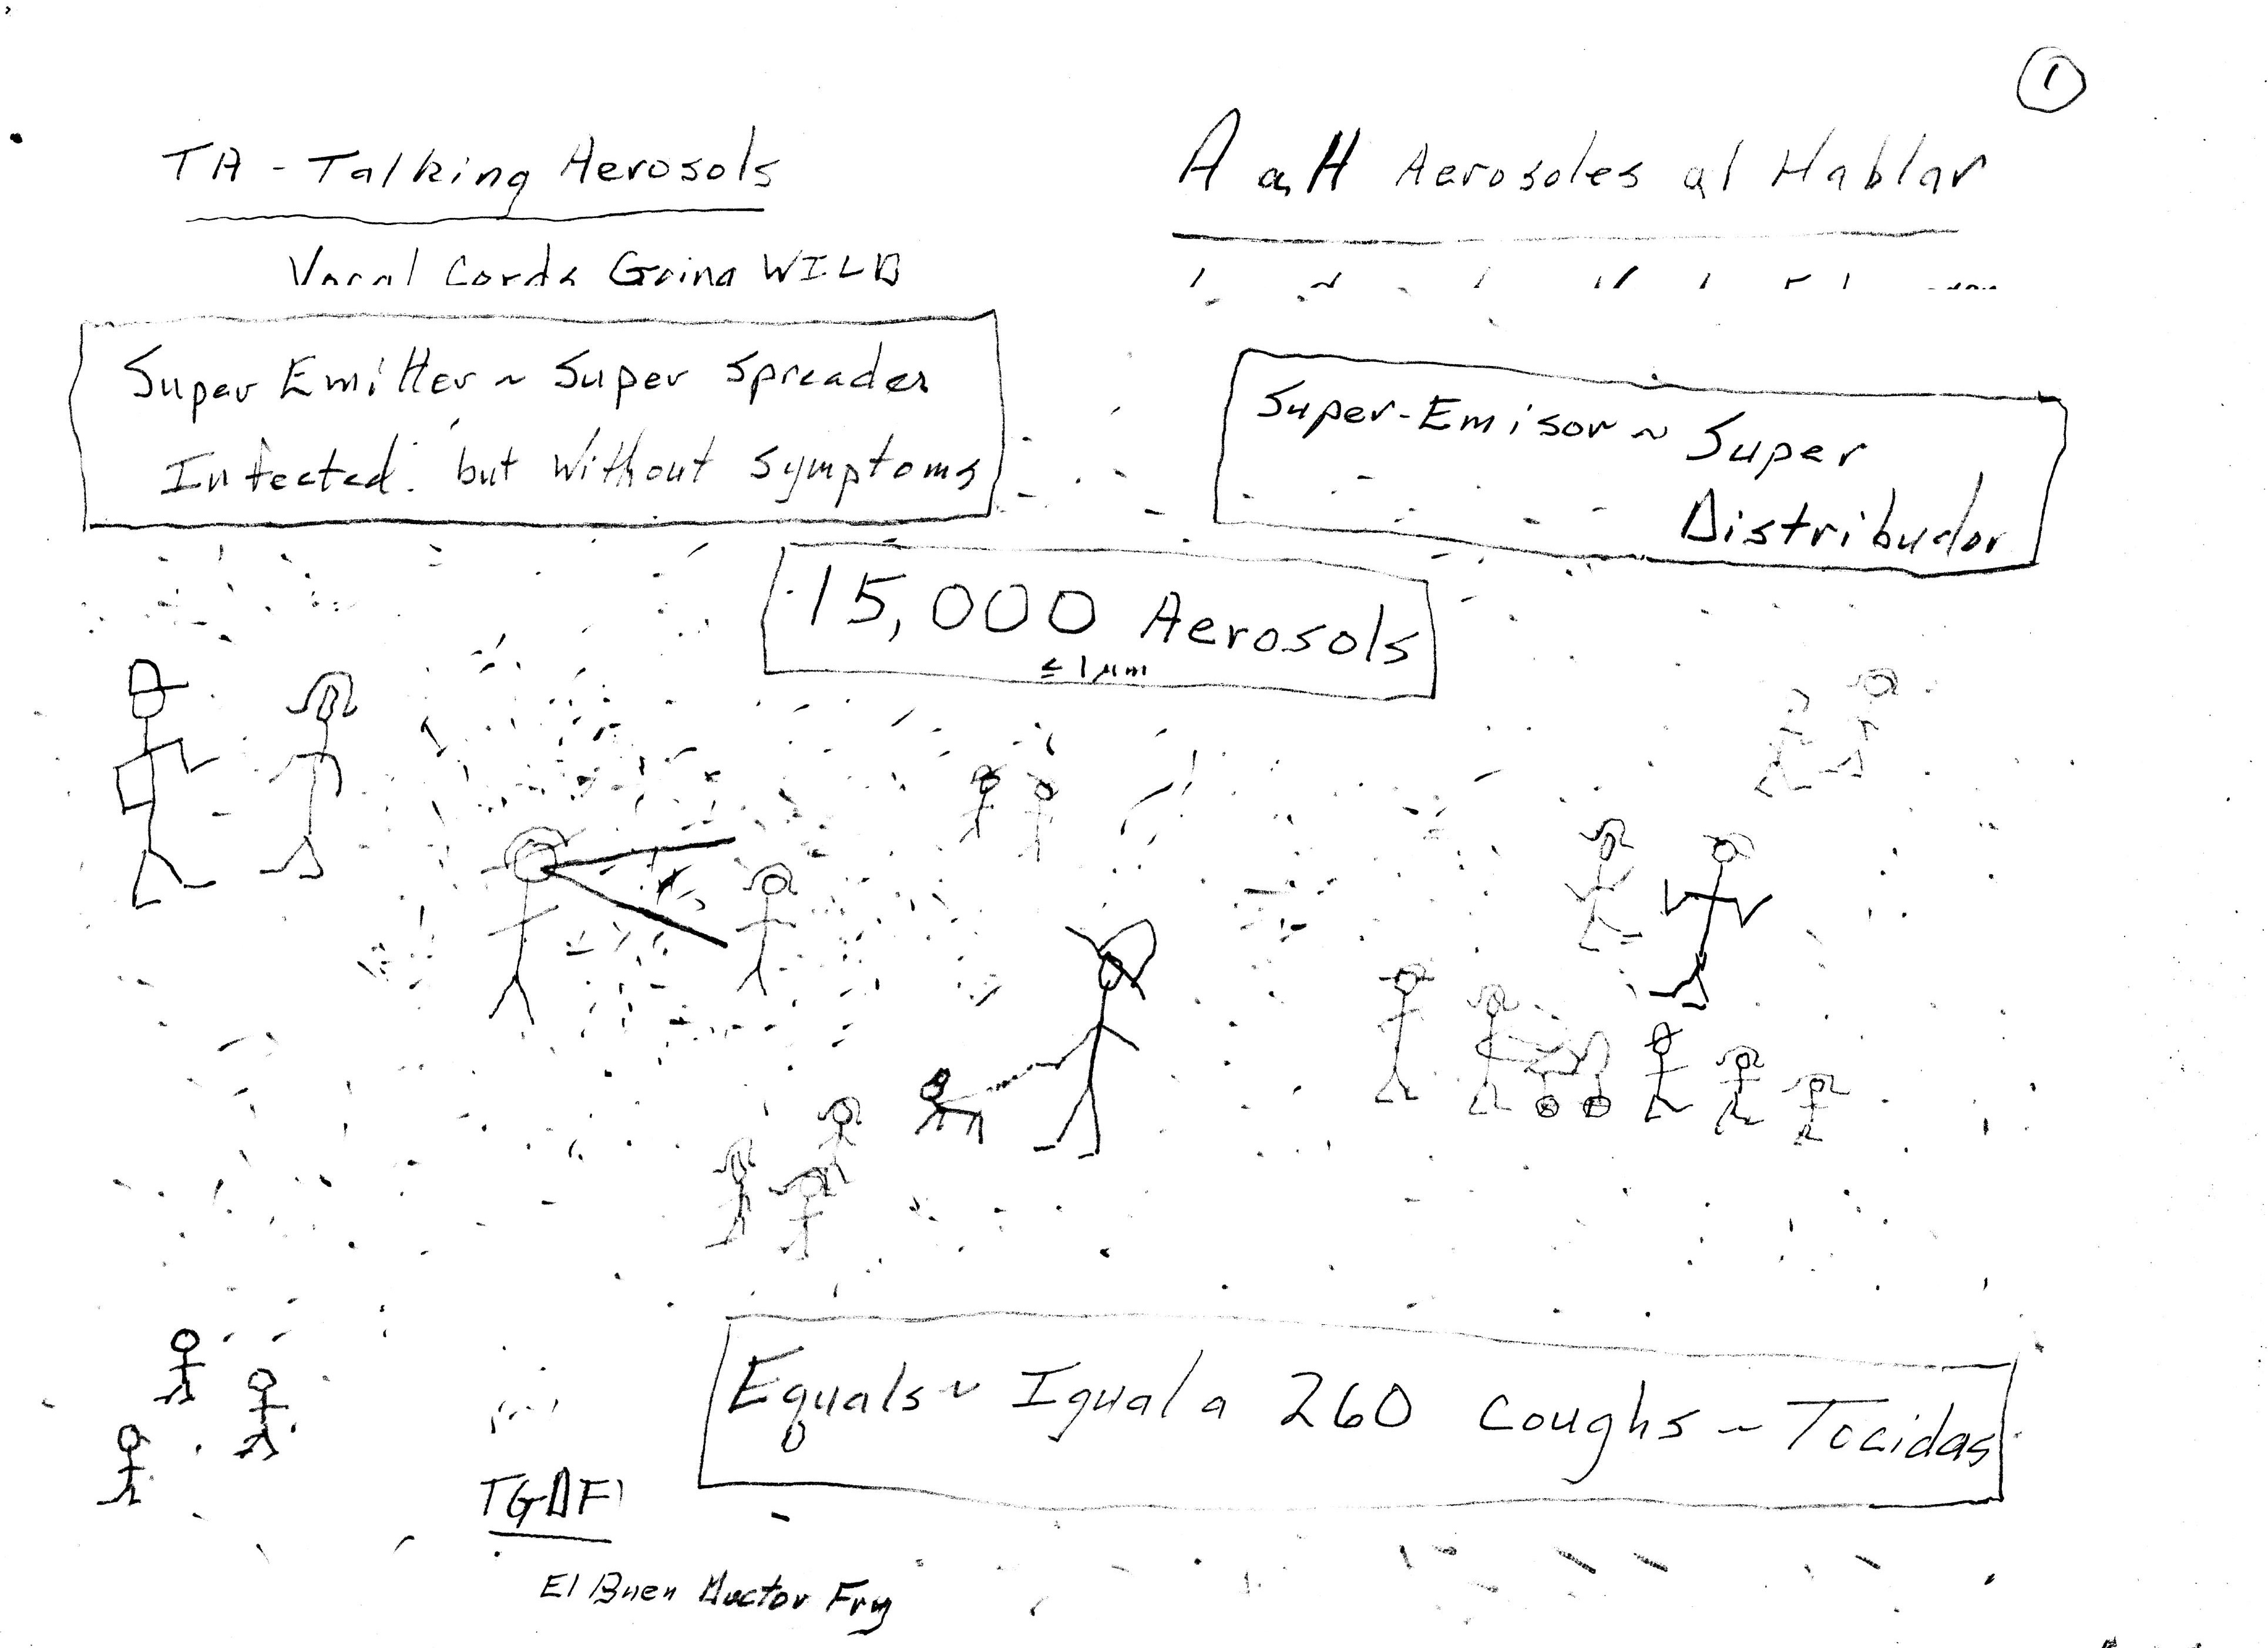 1
TA - Talking Aerosols
A a H Aerosoles al Hablar
Vocal Cords Going WILD
Super Emitter ~ Super Spreader
Infected but without symptoms
Super-Emisor ~ Super
Distribudor
15,000 Aerosols
≤ 1 µm
Equals ~ Igual a 260 coughs ~ Tocidas
TGDF
El Buen Doctor Fry